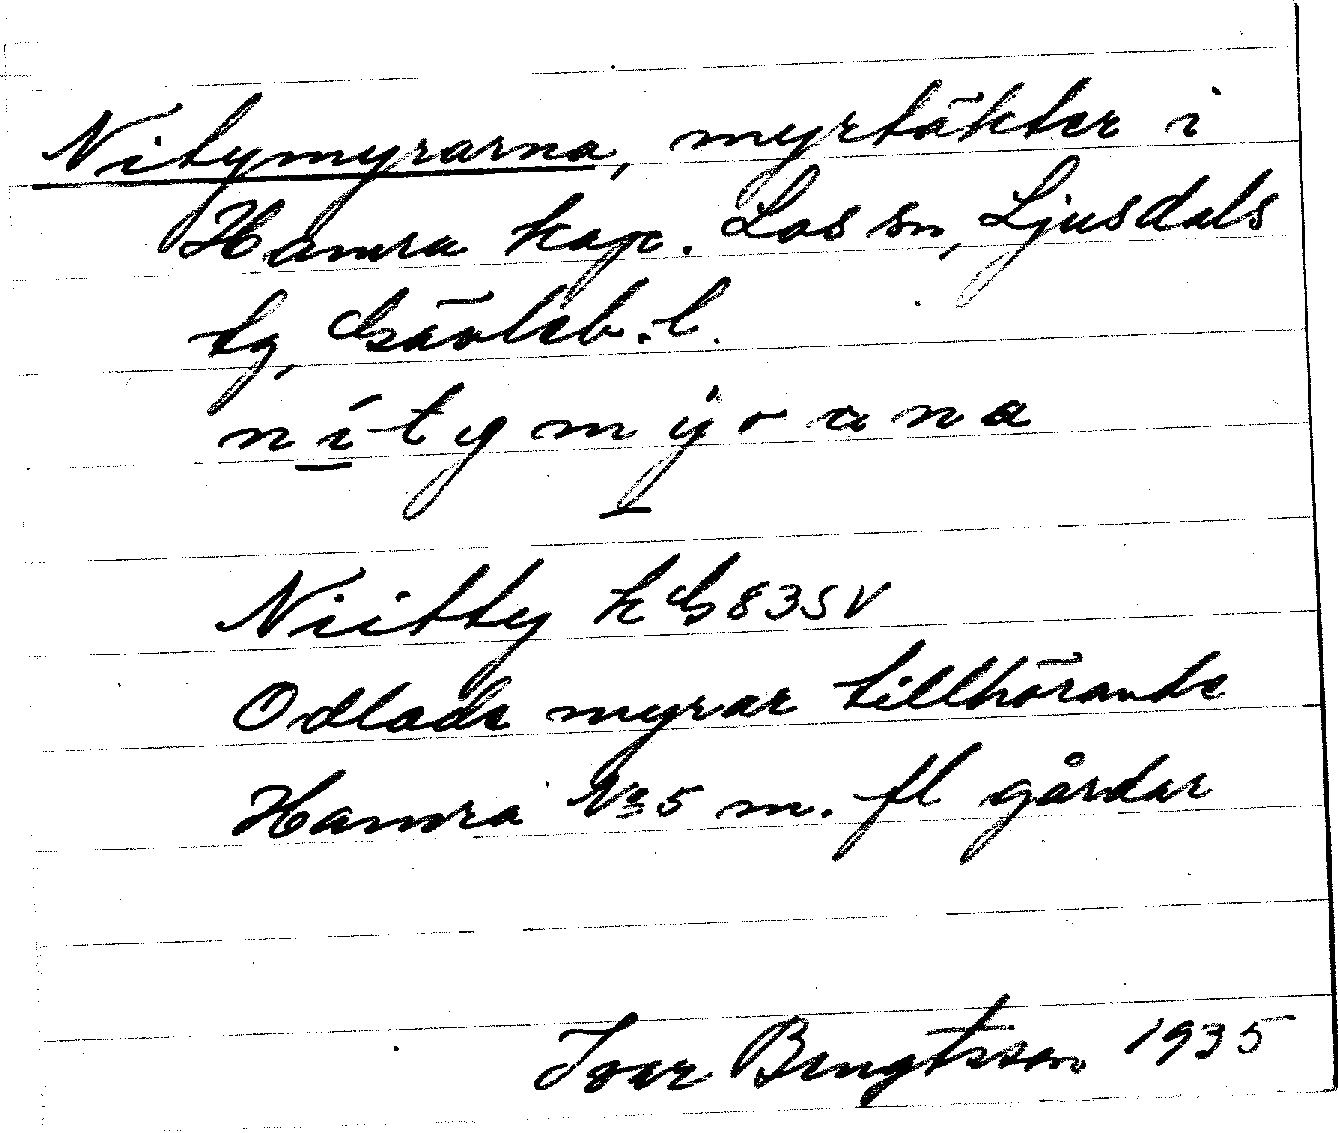 Nitymyrarna, myrtäkter i
Hamra kap. Los sn, Ljusdals
tg, Gävleb. l.
nítymýrana
Niitty k G 835 V
Odlade myrar tillhörande
Hamra No 5 m. fl gårdar
Ivar Bengtsson 1935